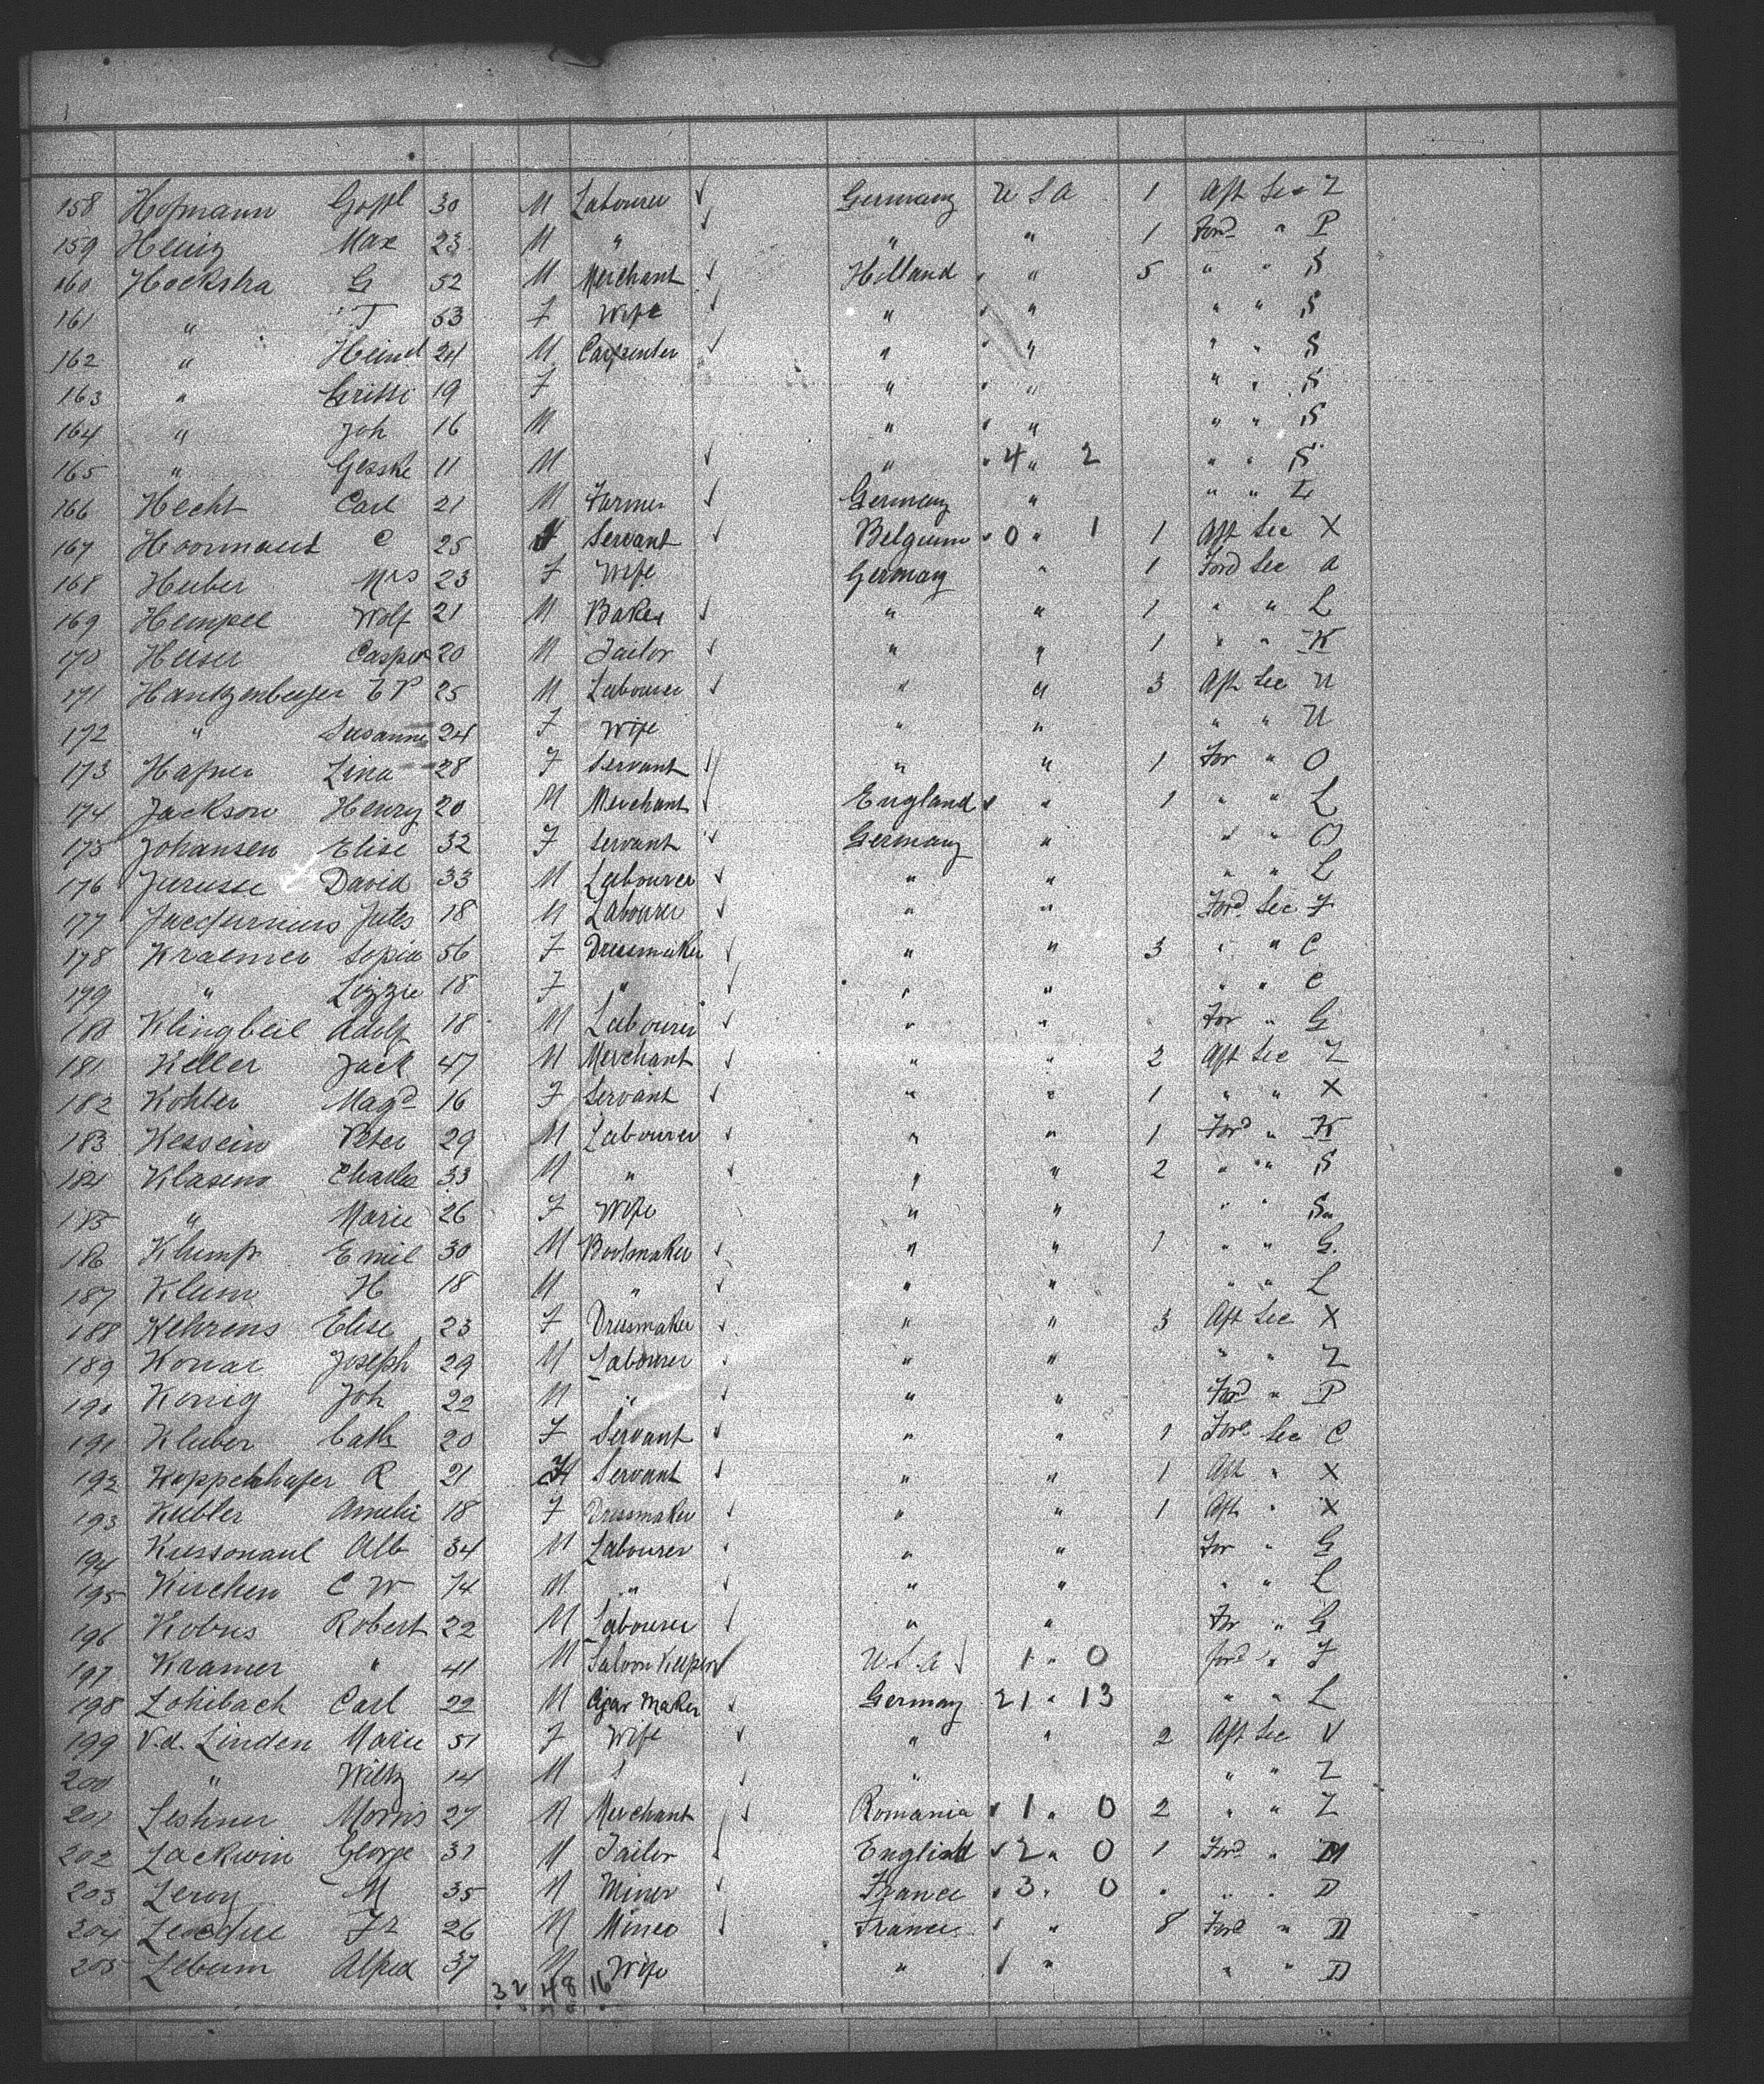 158 Hofmann Gopl 30 M Labourer ✓ Germany U S A 1 Aft Sec Z
159 Heinz Max 23 M " ✓ " " 1 Ford " P
160 Hoekstra G 52 M Merchant ✓ Holland " 5 " " S
161 " T 53 F Wife ✓ " " " " S
162 " Heind 24 M Carpenter ✓ " " " " S
163 " Gritti 19 F " " " " S
164 " Joh 16 M " " " " S
165 " Gesske 11 M ✓ " 4 " 2 " " S
166 Hecht Carl 21 M Farmer ✓ Germany " " " L
167 Hoornaut C 25 Servant ✓ Belgium 0 " 1 1 Aft Sec X
168 Huber Mrs 23 F Wife Germany " 1 Ford Sec a
169 Hempel Wolf 21 M Baker ✓ " " 1 " " L
170 Heiser Casper 20 M Tailor ✓ " " 1 " " K
171 Hantzenberger E P 25 M Labourer ✓ " " 3 Aft Sec U
172 " Susanne 24 F Wife " " " " U
173 Hafner Lina 28 F Servant ✓ " " 1 For " O
174 Jackson Henry 20 M Merchant ✓ England " 1 " " L
175 Johansen Elise 32 F Servant ✓ Germany " " " O
176 David 33 M Labourer ✓ " " " " L
177 Jules 18 M Labourer ✓ " " Ford Sec F
178 Kraemer Sopia 56 F Dressmaker ✓ " " 3 " " C
179 " Lizzie 18 F " ✓ " " " " C
180 Klingbeil Adolf 18 M Labourer ✓ " " For " G
181 Keller Jack 47 M Merchant ✓ " " 2 Aft Sec Z
182 Kohler Magd 16 F Servant ✓ " " 1 " " X
183 Kessein Peter 29 M Labourer ✓ " " 1 Ford " K
184 Klasens Charles 33 M " ✓ " " 2 " " S
185 " Marie 26 F Wife " " " " S
186 Klump Emil 30 M Bootmaker ✓ " " 1 " " G
187 Klum H 18 M " ✓ " " " " L
188 Kehrens Elise 23 F Dressmaker ✓ " " 3 Aft Sec X
189 Konar Joseph 29 M Labourer ✓ " " " " Z
190 Konig Joh 22 M " ✓ " " Ford " P
191 Kluber Cath 20 F Servant ✓ " " 1 Ford Sec C
192 Koppenhafer R 21 Servant ✓ " " 1 Aft " X
193 Kubler Amelie 18 F Dressmaker ✓ " " 1 Aft " X
194 Kussonaul Alb 34 M Labourer ✓ " " For " G
195 Kirchen C W 74 M " ✓ " " " " L
196 Kobus Robert 22 M Labourer ✓ " " For " G
197 Kramer " 41 M Saloon Keeper ✓ U.S.A ✓ 1 " 0 Ford " F
198 Lohibach Carl 22 M Cigar Maker ✓ Germany 21 " 13 " " L
199 V.d. Linden Marie 51 F Wife ✓ " " 2 Aft Sec V
200 " Willy 14 M ✓ " " " Z
201 Leshner Morris 27 M Merchant ✓ Romania ✓ 1 " 0 2 " " Z
202 Lackwin George 31 M Tailor ✓ England ✓ 2 " 0 1 Ford " M
203 Leroy M 35 M Miner ✓ France 3 " 0 " " " D
204 Fr 26 M Miner ✓ France ✓ " 8 Ford " D
205 Lebum Alfred 37 M Wife " ✓ " " " D
32 48 16